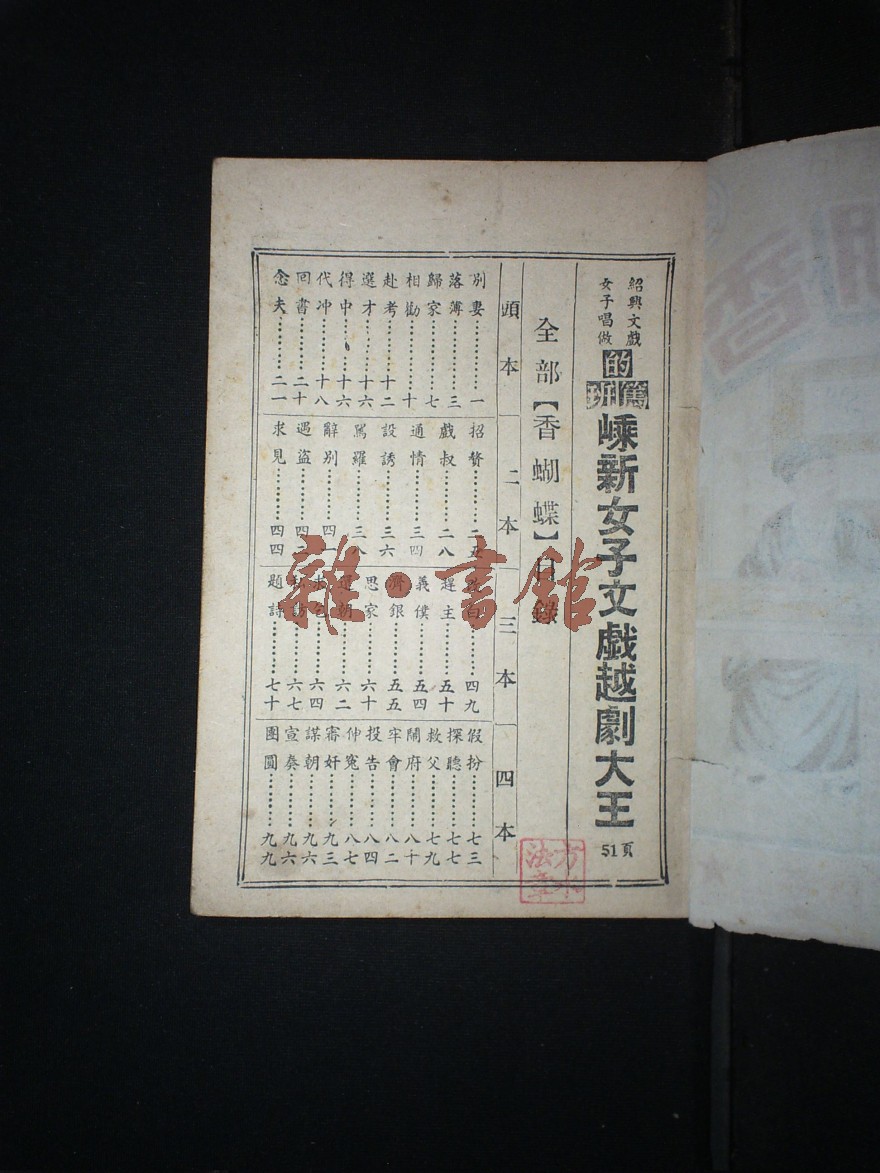 紹興文戲
女子唱做
的篤班
嵊新女子文戲越劇大王
51頁
全部【香蝴蝶】目錄
頭本
別妻………一
落薄………三
歸家………七
相勸………十
赴考………十二
選才………十六
得中………十六
代冲………十八
回書………二十
念夫………二一
二本
招贅………二五
戲叔………二八
通情………三四
設誘………三六
罵羅………三八
辭別………四一
遇盜………四二
求見………四四
三本
四九
趕主………五十
義僕………五四
濟銀………五五
思家………六十
朝………六二
六四
私訪………六七
題詩………七十
四本
假扮………七三
探聽………七七
救父………七九
鬧府………八十
牢會………八二
投告………八四
伸冤………八七
審奸………九三
謀朝………九六
宣奏………九六
團圓………九九
雜·書館
方水法章